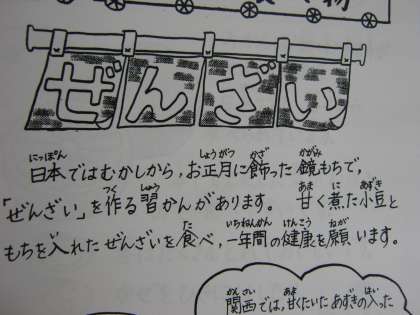 物
ぜんざい
日本ではむかしから、お正月に飾った鏡もちで、
「ぜんざい」を作る習かんがあります。 甘く煮た小豆と
もちを入れたぜんざいを食べ、一年間の健康を願います。
関西では、甘くたいたあずきの入った